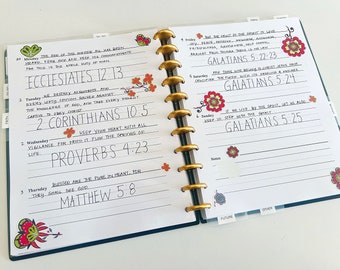 Monday THE END OF THE MATTER; ALL HAS BEEN
HEARD. FEAR GOD AND KEEP HIS COMMANDMENTS
FOR THIS IS THE WHOLE DUTY OF MAN.
ECCLESIATES 12:13
Tuesday WE DESTROY ARGUMENTS AND
EVERY LOFTY OPINION RAISED AGAINST
THE KNOWLEDGE OF GOD, AND TAKE EVERY THOUGHT
CAPTIVE TO OBEY CHRIST
2 CORINTHIANS 10:5
Wednesday KEEP YOUR HEART WITH ALL
VIGILANCE, FOR FROM IT FLOW THE SPRINGS OF
LIFE.
PROVERBS 4:23
3 Thursday BLESSED ARE THE PURE IN HEART, FOR
THEY SHALL SEE GOD.
MATTHEW 5:8
BUT THE FRUIT OF THE SPIRIT IS LOVE,
JOY, PEACE, PATIENCE, KINDNESS, GOODNESS,
FAITHFULNESS, GENTLENESS, SELF-CONTROL
AGAINST SUCH THINGS THERE IS NO LAW.
GALATIANS 5:22-23
AND THOSE WHO BELONG TO CHRIST JESUS HAVE
CRUCIFIED THE FLESH WITH ITS PASSIONS &
GALATIANS 5:24
IF WE LIVE BY THE SPIRIT, LET US ALSO
KEEP IN STEP WITH THE SPIRIT.
GALATIANS 5:25
Notes